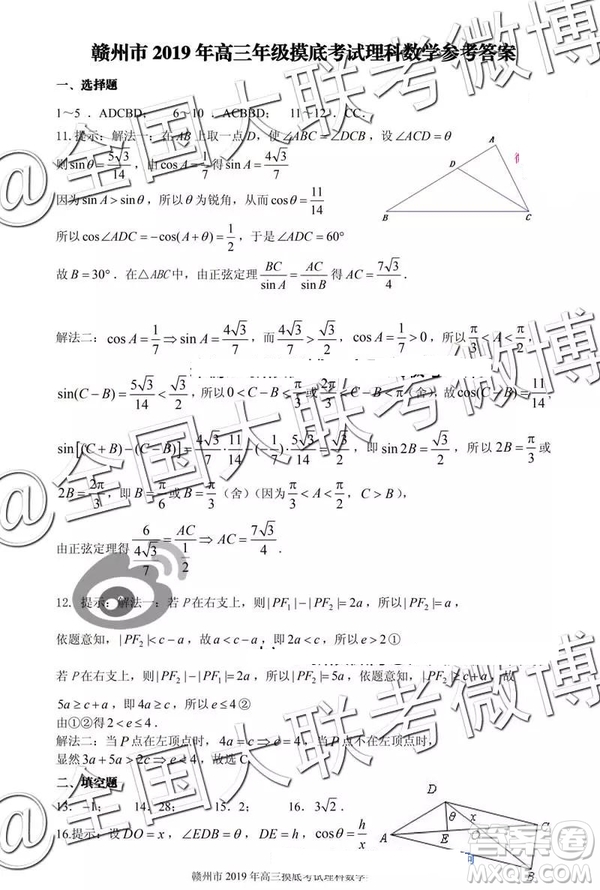 赣州市 2019 年高三年级摸底考试理科数学参考答案
一、选择题
1～5 . ADCBD; 6～10 . ACBBD; 11～12 . CC.
11.提示:解法一:在 AB 上取一点 D,使∠ABC=∠DCB,设∠ACD=θ
则 sinθ=5√3/14,由 cosA=1/7 得 sinA=4√3/7
因为 sinA>sinθ,所以 θ 为锐角,从而 cosθ=11/14
所以 cos∠ADC=−cos(A+θ)=1/2,于是∠ADC=60°
故 B=30°.在△ABC 中,由正弦定理 BC/sinA=AC/sinB 得 AC=7√3/4.
A
D
B
C
解法二:cosA=1/7⇒sinA=4√3/7,而 4√3/7>√3/2,cosA=1/7>0,所以 π/3<A<π/2,
sin(C−B)=5√3/14<√3/2,所以 0<C−B<π/3 或 2π/3<C−B<π(舍),故 cos(C−B)=11/14,
sin[(C+B)−(C−B)]=4√3/7·11/14−(−1/7)·5√3/14=√3/2,即 sin2B=√3/2,所以 2B=π/3 或
2B=2π/3,即 B=π/6 或 B=π/3(舍)(因为 π/3<A<π/2,C>B),
由正弦定理得 6/(4√3/7)=AC/(1/2)⇒AC=7√3/4.
12. 提示:解法一:若 P 在右支上,则|PF₁|−|PF₂|=2a,所以|PF₂|=a,
依题意知,|PF₂|<c−a,故 a<c−a,即 2a<c,所以 e>2 ①
若 P 在右支上,则|PF₂|−|PF₁|=2a,所以|PF₂|=5a,依题意知,|PF₂|≥c+a,故
5a≥c+a,即 4a≥c,所以 e≤4 ②
由①②得 2<e≤4.
解法二:当 P 点在左顶点时,4a=c⇒e=4,当 P 点不在左顶点时,
显然 3a+5a>2c⇒e<4,故选 C.
二、填空题
13. −1; 14. 28; 15. 2; 16. 3√2.
16.提示:设 DO=x,∠EDB=θ,DE=h,cosθ=h/x
D
θ
x
A
E
C
B
赣州市 2019 年高三摸底考试理科数学
@全国大联考微博
@全国大联考微博
@全国大联考微博
答案圈
MXQE.COM